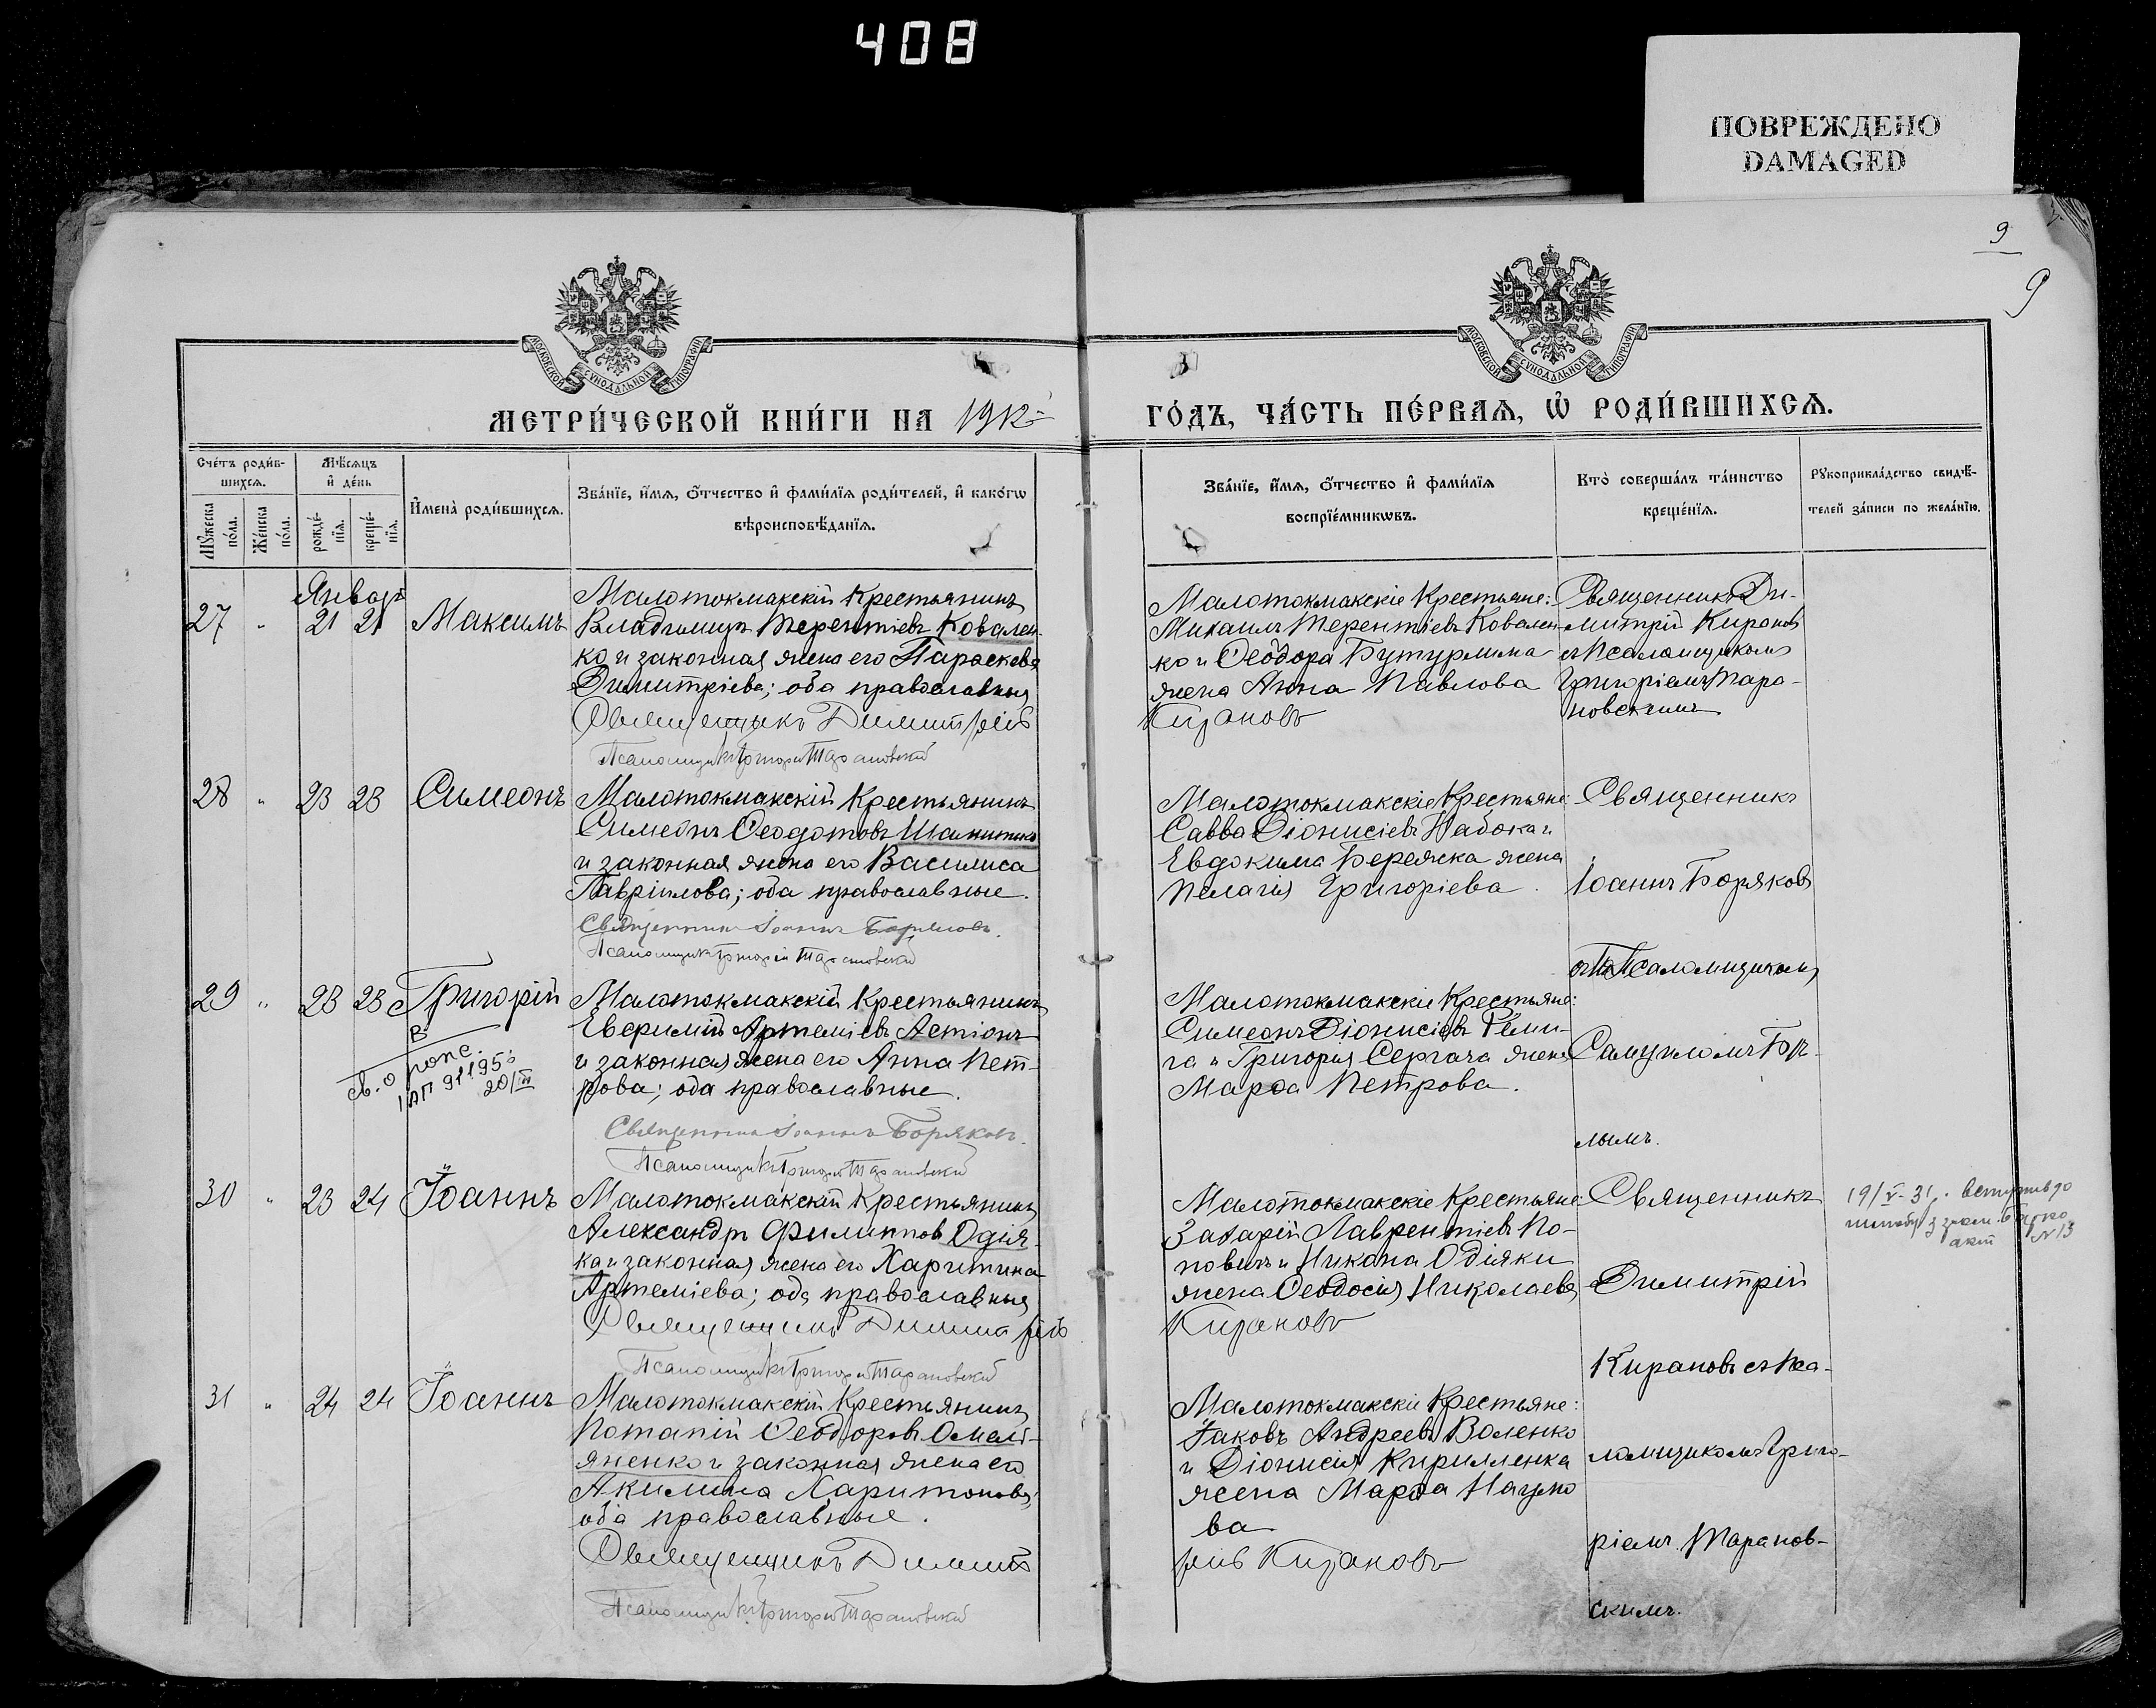 408
ПОВРЕЖДЕНО
DAMAGED
9
9
МОСКОВСКОЙ СѴНОДАЛЬНОЙ ТИПОГРАФІИ
МОСКОВСКОЙ СѴНОДАЛЬНОЙ ТИПОГРАФІИ
МЕТРИ́ЧЕСКОЙ КНИ́ГИ НА 1912
ГО́ДЪ, ЧА́СТЬ ПЕ́РВАѦ, Ѡ҆ РОДИ́ВШИХСѦ.
Сче́тъ роди́в-
шихсѧ.
Мꙋ́жеска по́ла.
Же́нска по́ла.
Мѣ́сѧцъ
и҆ де́нь
рожде́-
нїѧ.
креще́-
нїѧ.
И҆мена̀ роди́вшихсѧ.
Зва́нїе, и҆́мѧ, ѻ҆́тчество и҆ фами́лїѧ роди́телей, и҆ како́гѡ
вѣроисповѣ́данїѧ.
Зва́нїе, и҆́мѧ, ѻ҆́тчество и҆ фами́лїѧ
воспрїе́мникѡвъ.
Кто̀ соверша́лъ та́инство
креще́нїѧ.
Рꙋкоприкла́дство свидѣ́-
телей за́писи по жела́нїю.
Январь
27 " 21 21 Максимъ
Малотокмакскій Крестьянинъ
Владимиръ Терентіевъ Ковален-
ко и законная жена его Параскева
Димитріева; оба православныя
Священникъ Димитрій
Псаломщикъ Григорій Тарановскій
Малотокмакскіе Крестьяне:
Михаилъ Терентіевъ Ковален-
ко и Ѳеодора Бутурлина
жена Анна Павлова
Кирановъ
Священникъ Ди-
митрій Кирановъ
съ Псаломщикомъ
Григоріемъ Тара-
новскимъ
28 " 23 23 Симеонъ
Малотокмакскій Крестьянинъ
Симеонъ Ѳеодотовъ
и законная жена его Василиса
Гавріилова; оба православные.
Священникъ Іоаннъ Боряковъ.
Псаломщикъ Григорій Тарановскій
Малотокмакскіе Крестьяне:
Савва Діонисіевъ Набока и
Евдокима Бережка жена
Пелагія Григоріева.
Священникъ
Іоаннъ Боряковъ
съ Псаломщикомъ
29 " 23 23 Григорій
Малотокмакскій Крестьянинъ
Артеміевъ Летіонъ
и законная жена его Анна Пет-
рова; оба православные.
Священникъ Іоаннъ Боряковъ.
Псаломщикъ Григорій Тарановскій
Малотокмакскіе Крестьяне:
Симеонъ Діонисіевъ
га и Григорія Сергача жена
Марѳа Петрова.
Самуиломъ
лымъ.
30 " 23 24 Іоаннъ
Малотокмакскій Крестьянинъ
Александръ Филиппов Одія-
ка и законная жена его Харитина
Артеміева; оба православныя
Священникъ Димитрій
Псаломщикъ Григорій Тарановскій
Малотокмакскіе Крестьяне:
Захарій Лаврентіевъ По-
повичъ и Никона Одіяки
жена Ѳеодосія Николаева
Кирановъ
Священникъ
Димитрій
Кирановъ съ Пса-
ломщикомъ Григо-
ріемъ Таранов-
скимъ.
19/V-31
31 " 24 24 Іоаннъ
Малотокмакскій Крестьянинъ
Потапій Ѳеодоровъ Омель-
яненко и законная жена его
Акилина Харитонова;
оба православные.
Священникъ Димит
Псаломщикъ Григорій Тарановскій
Малотокмакскіе Крестьяне:
Іаковъ Андреевъ Воленко
и Діонисія Кирилленка
жена Марѳа
ва
рій Кирановъ